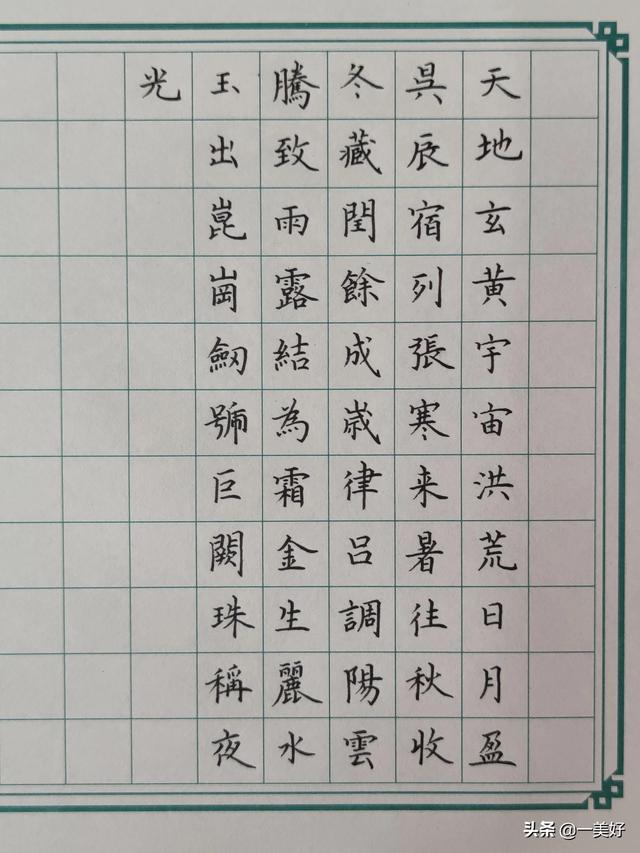 天地玄黄宇宙洪荒日月盈
昃辰宿列張寒来暑往秋收
冬藏閏餘成歲律吕調陽雲
騰致雨露結為霜金生麗水
玉出崑崗劒號巨闕珠稱夜
光
头条 @一美好